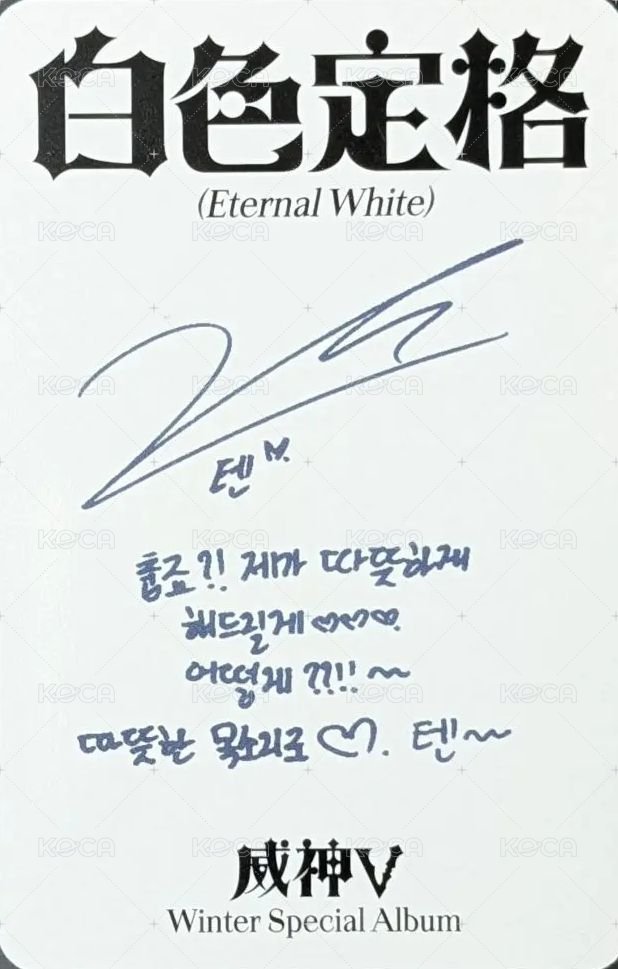 白色定格
(Eternal White)
텐
춥죠?! 제가 따뜻하게
해드릴게♡♡♡.
어떻게 ??!!~
따뜻한 목소리로 ♡. 텐~
威神V
Winter Special Album
KOCA